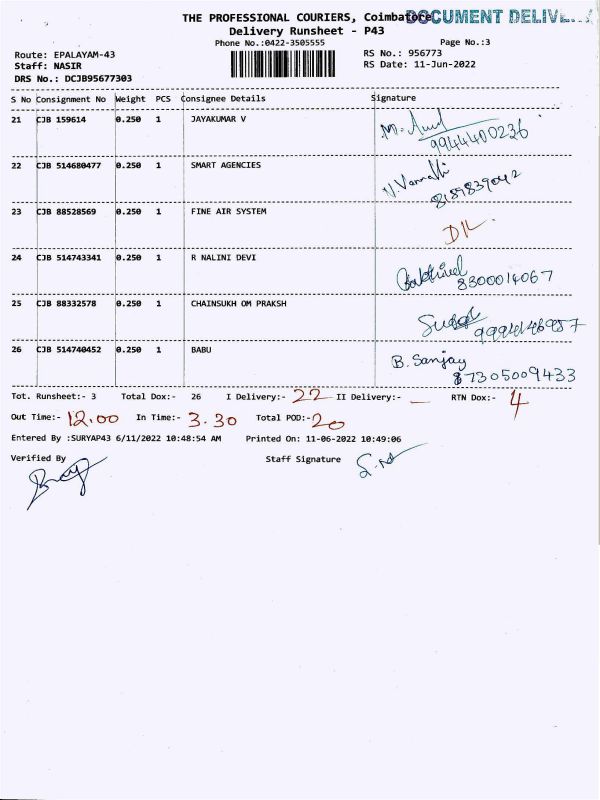 THE PROFESSIONAL COURIERS, Coimbatore
DOCUMENT
Delivery Runsheet - P43
Phone No.:0422-3505555
Page No.:3
Route: EPALAYAM-43
RS No.: 956773
Staff: NASIR
RS Date: 11-Jun-2022
DRS No.: DCJB95677303
S No Consignment No Weight PCS Consignee Details Signature
21 CJB 159614 0.250 1 JAYAKUMAR V
9944400236
22 CJB 514680477 0.250 1 SMART AGENCIES
8189839042
23 CJB 88528569 0.250 1 FINE AIR SYSTEM
24 CJB 514743341 0.250 1 R NALINI DEVI
8300014067
25 CJB 88332578 0.250 1 CHAINSUKH OM PRAKSH
26 CJB 514740452 0.250 1 BABU
B. Sanjay
87305009433
Tot. Runsheet:- 3 Total Dox:- 26 I Delivery:- 22 II Delivery:- — RTN Dox:- 4
Out Time:- 12.00 In Time:- 3.30 Total POD:- 20
Entered By :SURYAP43 6/11/2022 10:48:54 AM Printed On: 11-06-2022 10:49:06
Verified By Staff Signature